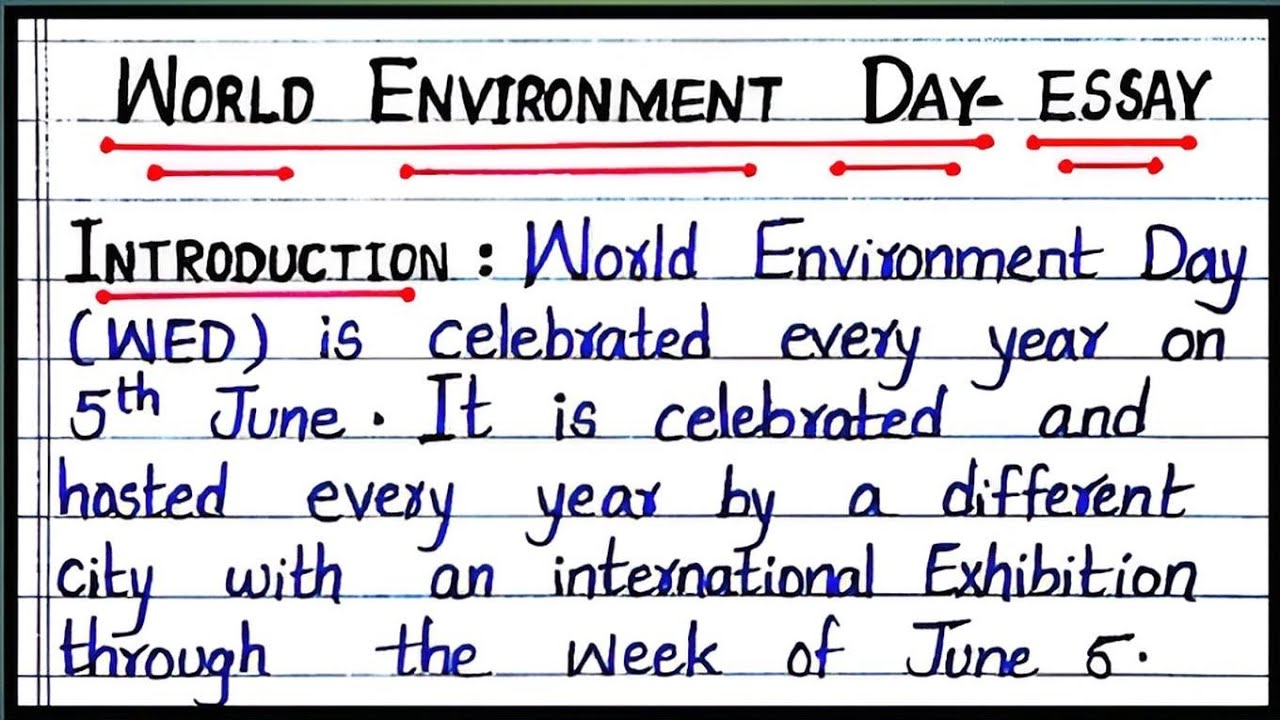 WORLD ENVIRONMENT DAY- ESSAY
INTRODUCTION : World Environment Day
(WED) is celebrated every year on
5th June. It is celebrated and
hosted every year by a different
city with an international Exhibition
through the week of June 5.